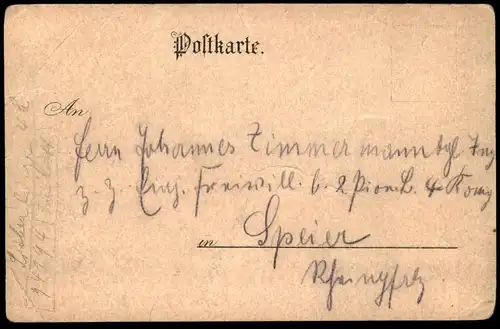 Postkarte.
An
Herrn Johannes Zimmermann
z. Z. Einj. Freiwill. b. 2 Pion. B. 4 Komp
in Speier
Rheinpfalz